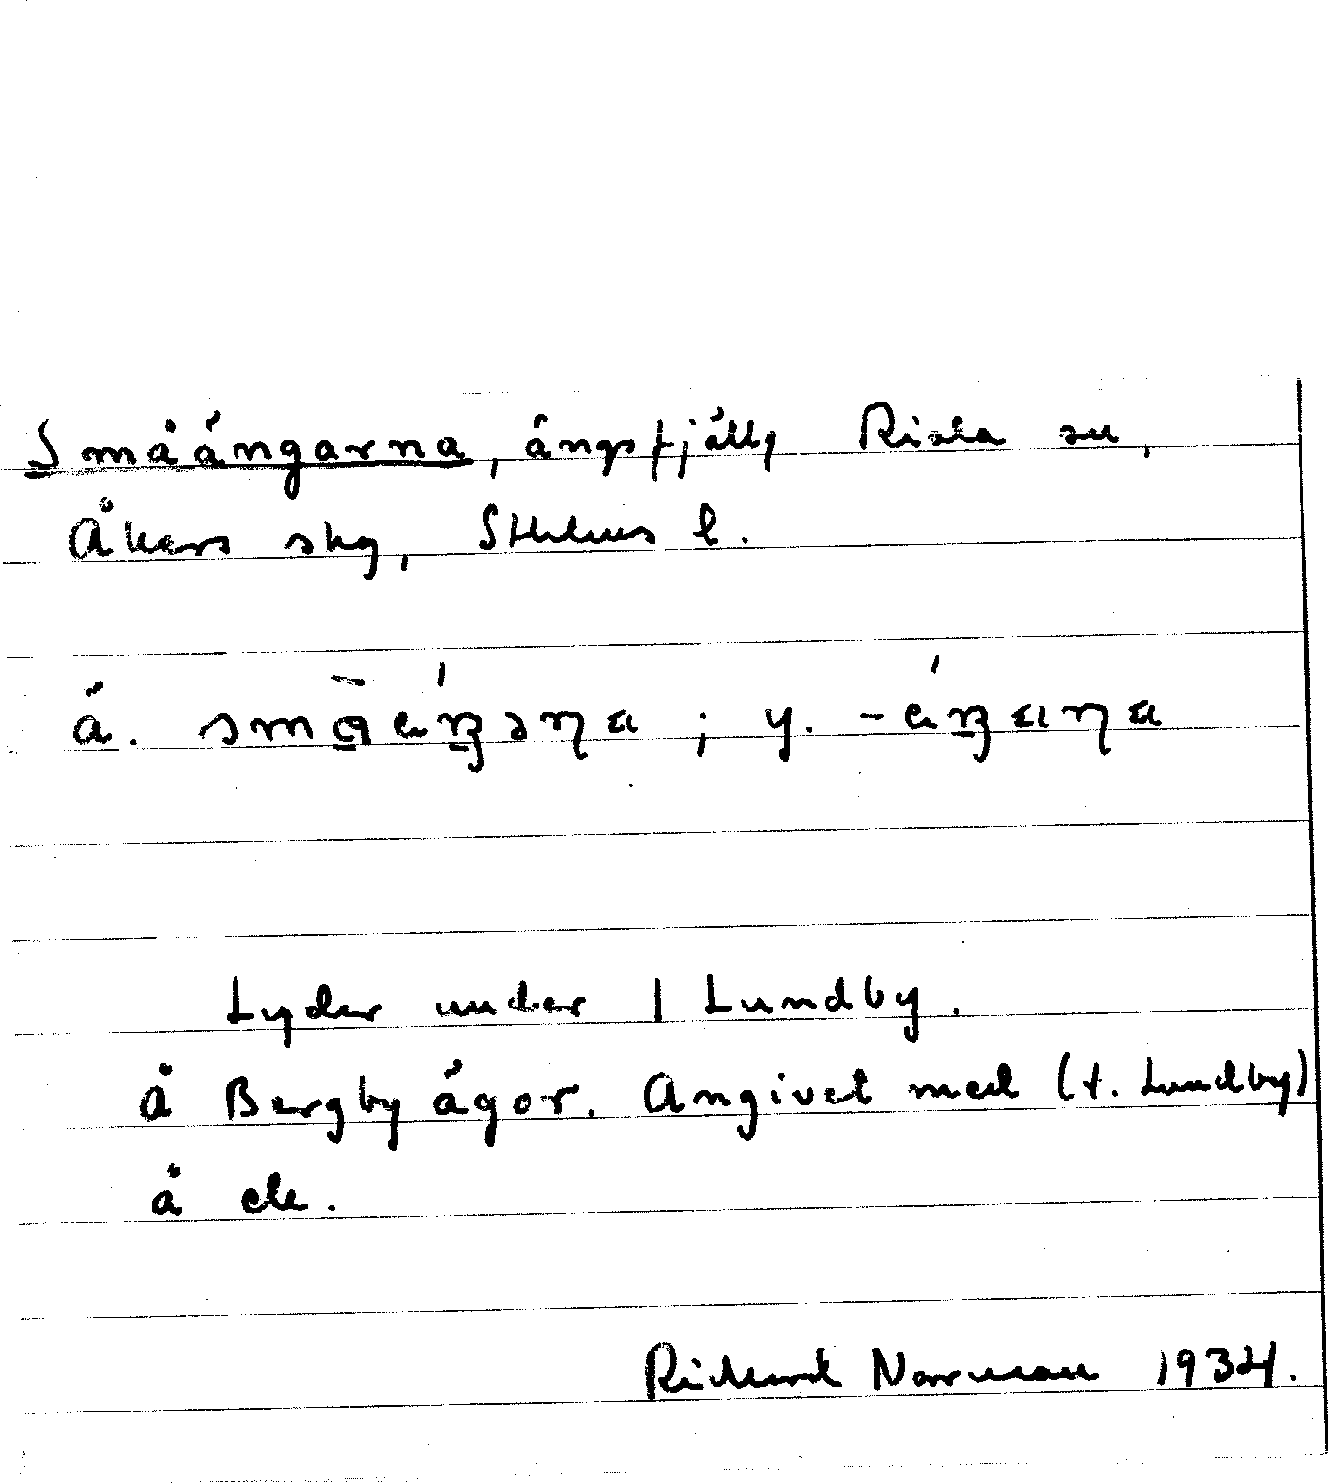 Småängarna, ängsfjäll, Riala sn,
Åkers skg, Sthlms l.
ä. ; y.
Lyder under 1 Lundby.
å Bergby ägor. Angivet med (t. Lundby)
å ek.
Rickard Norrman 1934.